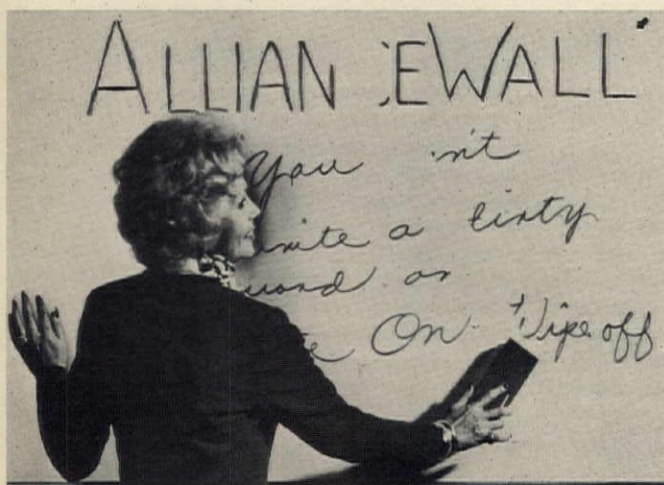 ALLIAN EWALL
You n't
write a dirty
word on
On Wipe off